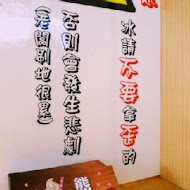 冰請不要拿歪的
否則會發生悲劇
(港闆刷地很累)
熊